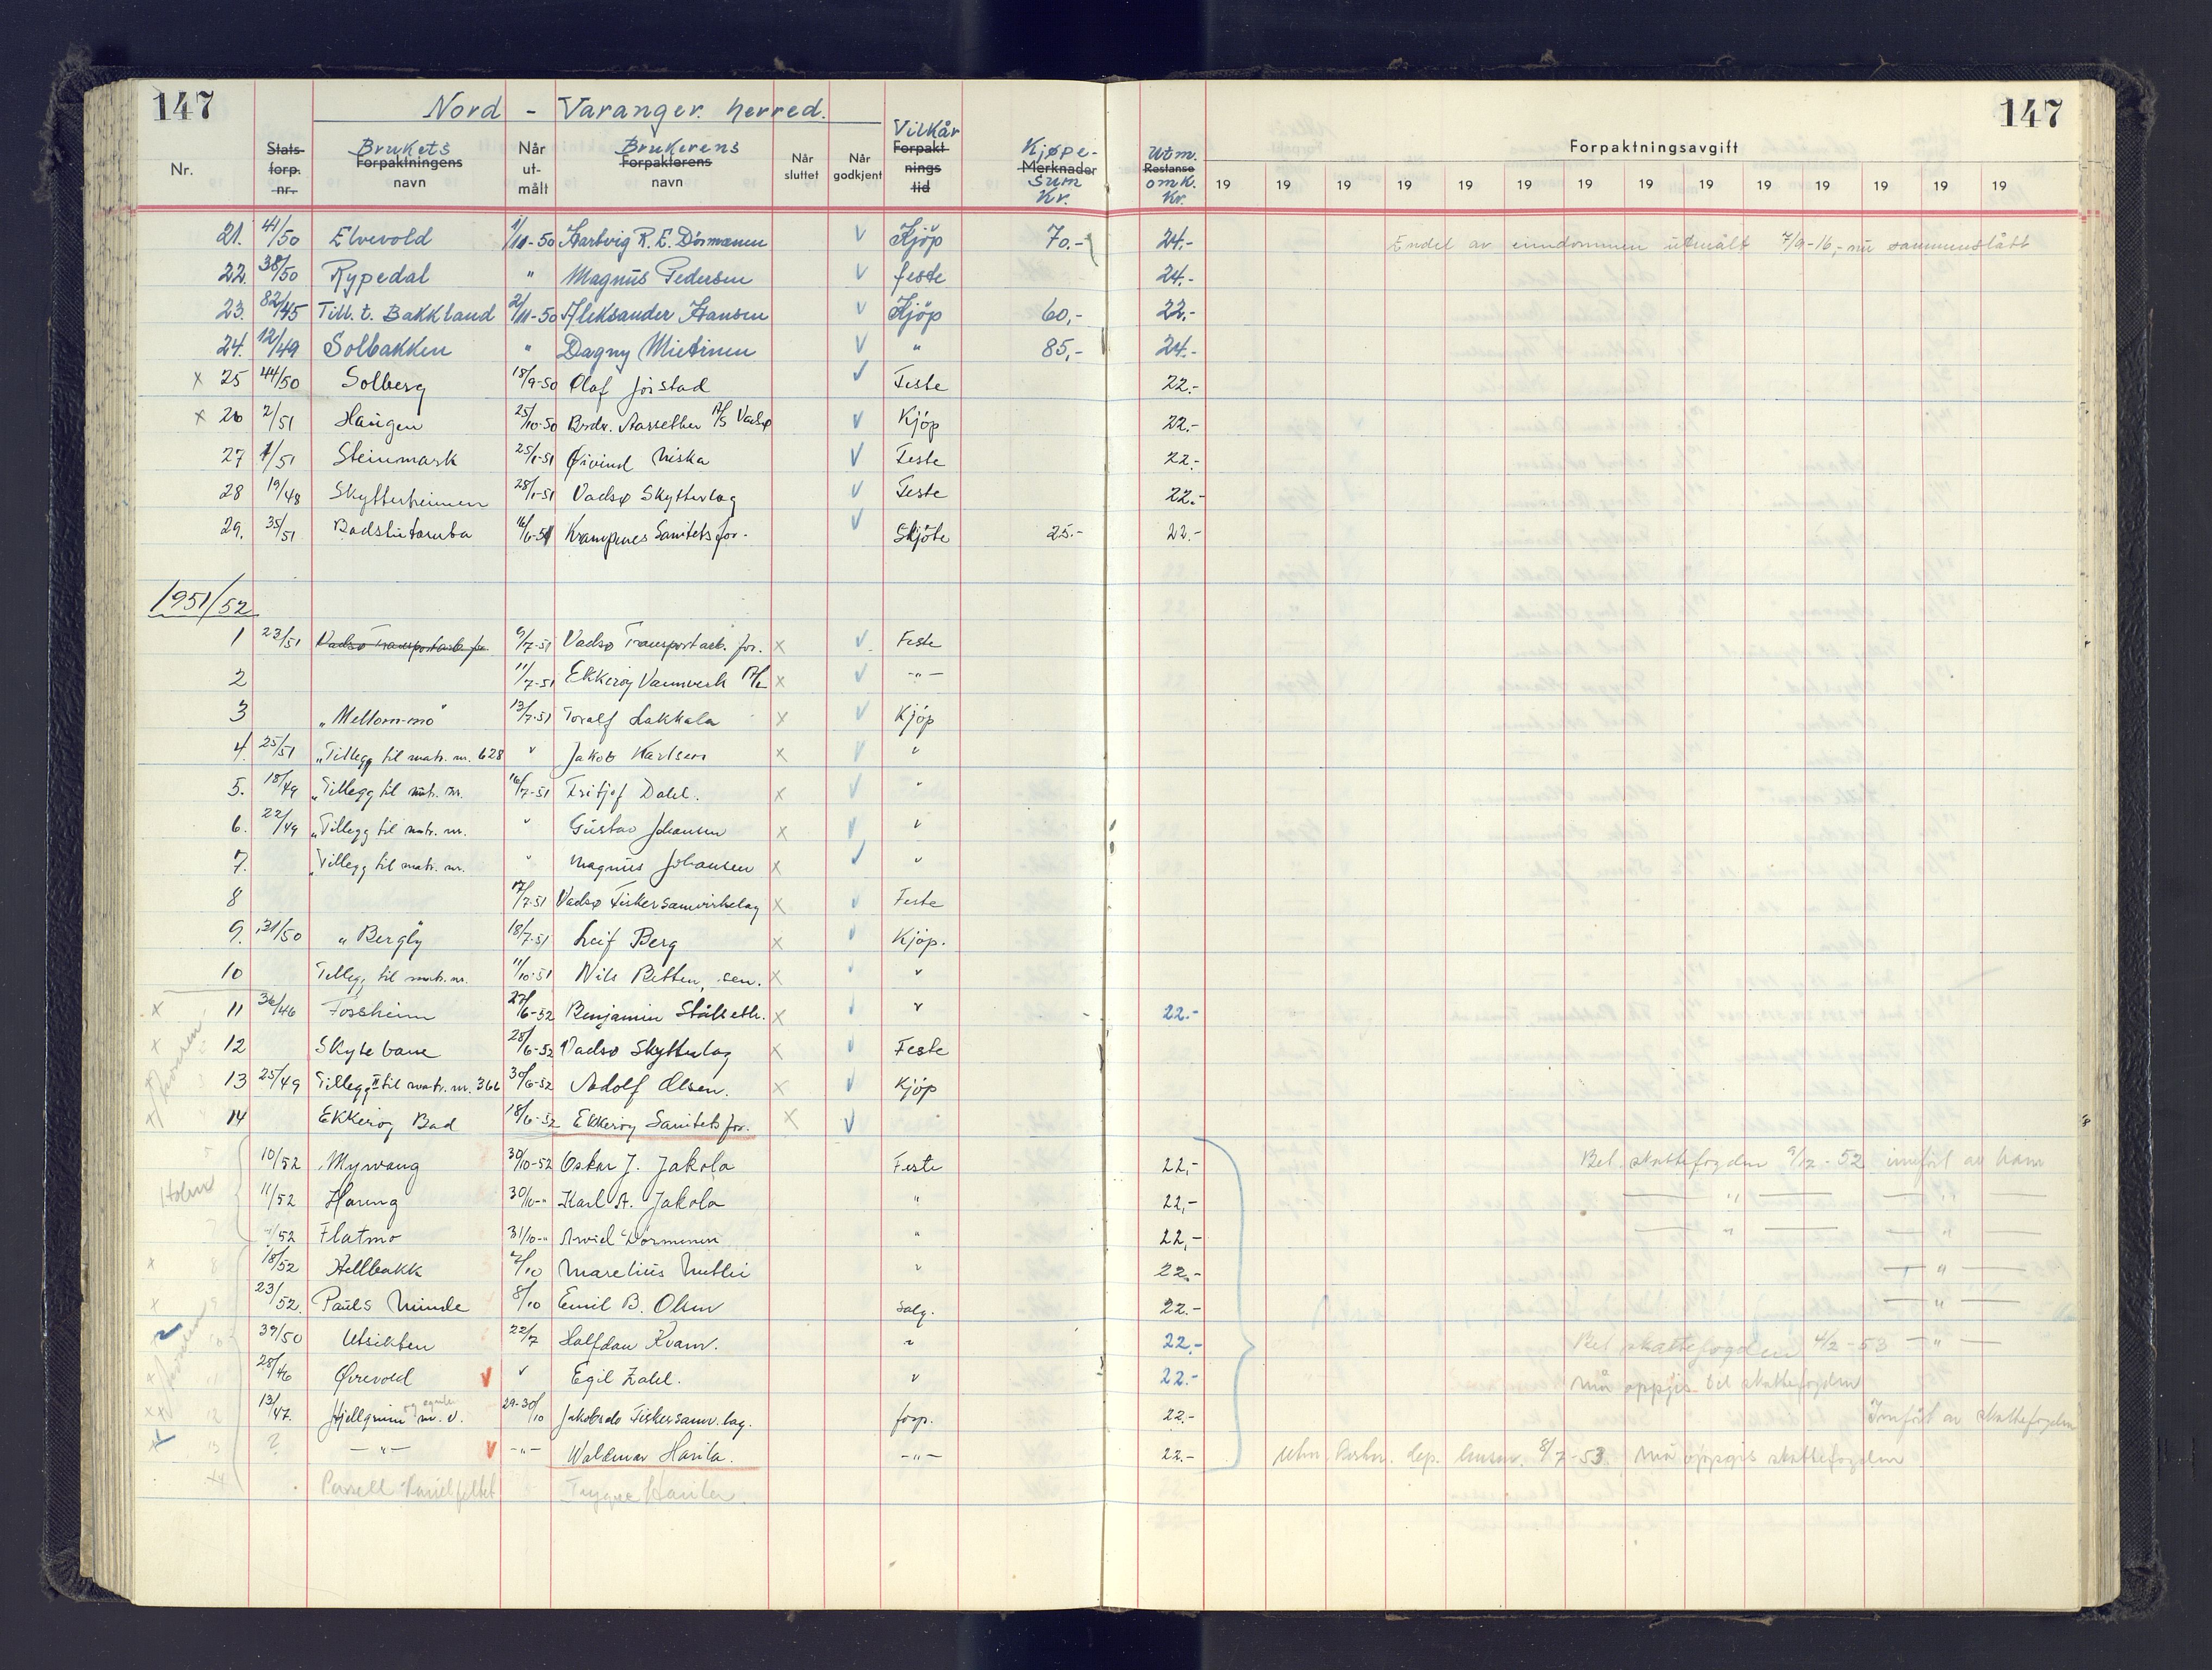 147 Nord - Varanger herred. 147
Nr. Stats- forp. nr. Brukets Forpaktningens navn Når ut- målt Brukerens Forpakterens navn Når sluttet Når godkjent Vilkår Forpakt- nings tid Kjøpe- Merknader sum Kr. Utm. Restanse omk. Kr. Forpaktningsavgift
19 19 19 19 19 19 19 19 19 19 19 19 19 19
21. 41/50 Elvevold 1/11-50 Hartvig R. E. Dörmænen Kjöp 70.- 24.- Endel av eiendommen utmålt 7/9-16,- nu sammenslått
22. 38/50 Rypedal " Magnus Pedersen feste 24.-
23. 82/45 Till. t. Bakkland 2/11-50 Aleksander Hansen Kjöp 60,- 22.-
24. 12/49 Solbakken " Dagny Mietinen " 85,- 24.-
x 25 44/50 Solberg 18/9-50 Olaf Jöistad Feste 22.-
x 26 2/51 Haugen 25/10-50 Brdr. Aarsether A/S Vadsø Kjöp 22.-
27 1/51 Steinmark 25/1-51 Øivind Niska Feste 22.-
28 19/48 Skytterheimen 28/1-51 Vadsø Skytterlag Feste 22.-
29. 35/51 Badstutomta 16/6-51 Krampenes Sanitetsfor. Skjöte 25.- 22.-
1951/52
1 23/51 Vadsø Transportarb. for. 9/7-51 Vadsø Transportarb. for. x Feste
2 11/7-51 Ekkerøy Vannverk A/L x -"-
3 "Mellom-mo" 13/7-51 Toralf Lakkala x Kjöp
4. 25/51 "Tillegg til matr. nr. 628 " Jakob Karlsen x "
5. 18/49 "Tillegg til matr. nr. 16/7-51 Fritjof Dahl. x "
6. 22/49 "Tillegg til matr. nr. " Gustav Johansen x "
7. "Tillegg til matr. nr. " Magnus Johansen x "
8 17/7-51 Vadsø Fiskersamvirkelag x Feste
9. 31/50 "Bergly" 18/7-51 Leif Berg x Kjöp.
10 Tillegg til matr. nr. 11/10-51 Nils Betten, sen. x "
x 11 36/46 Fossheim 27/6-52 Benjamin Stålseth. x " 22.-
x 12 Skytebane 28/6-52 Vadsø Skytterlag x Feste
13 25/49 Tillegg II til matr. nr. 366 30/6-52 Adolf Olsen. x Kjöp
14 Ekkerøy Bad 18/6-52 Ekkerøy Sanitetsfor. x
10/52 Myrvang 30/10-52 Oskar J. Jakola Feste 22,- Bet. skattefogden 9/12-52 innført av ham
Holm 11/52 Haring 30/10-" Karl A. Jakola " 22,- " "
/52 Flatmo 31/10-" Arvid Dørmenen " 22,- " "
x 18/52 Hellbakk /10 Marelius " 22.- "
x 23/52. Pauls Minde 8/10 Emil B. Olsen Salg. 22.- "
39/50 Utsikten 22/7 Halfdan Kvam. " 22.- Bet skattefogden 4/2-53 "
28/46 Øvrevold v " Egil Dahl. " 22.- må oppgis til skattefogden
13/47. Hjellgrunn m. v. 29-30/10 Jakobselv Fiskersamv. lag. forp. 22.- Innført av skattefogden
? -"- v -"- Waldemar Harila. -"- 22.- dep. 8/7-53 må oppgis skattefogden
Parsell Trygve Harila.